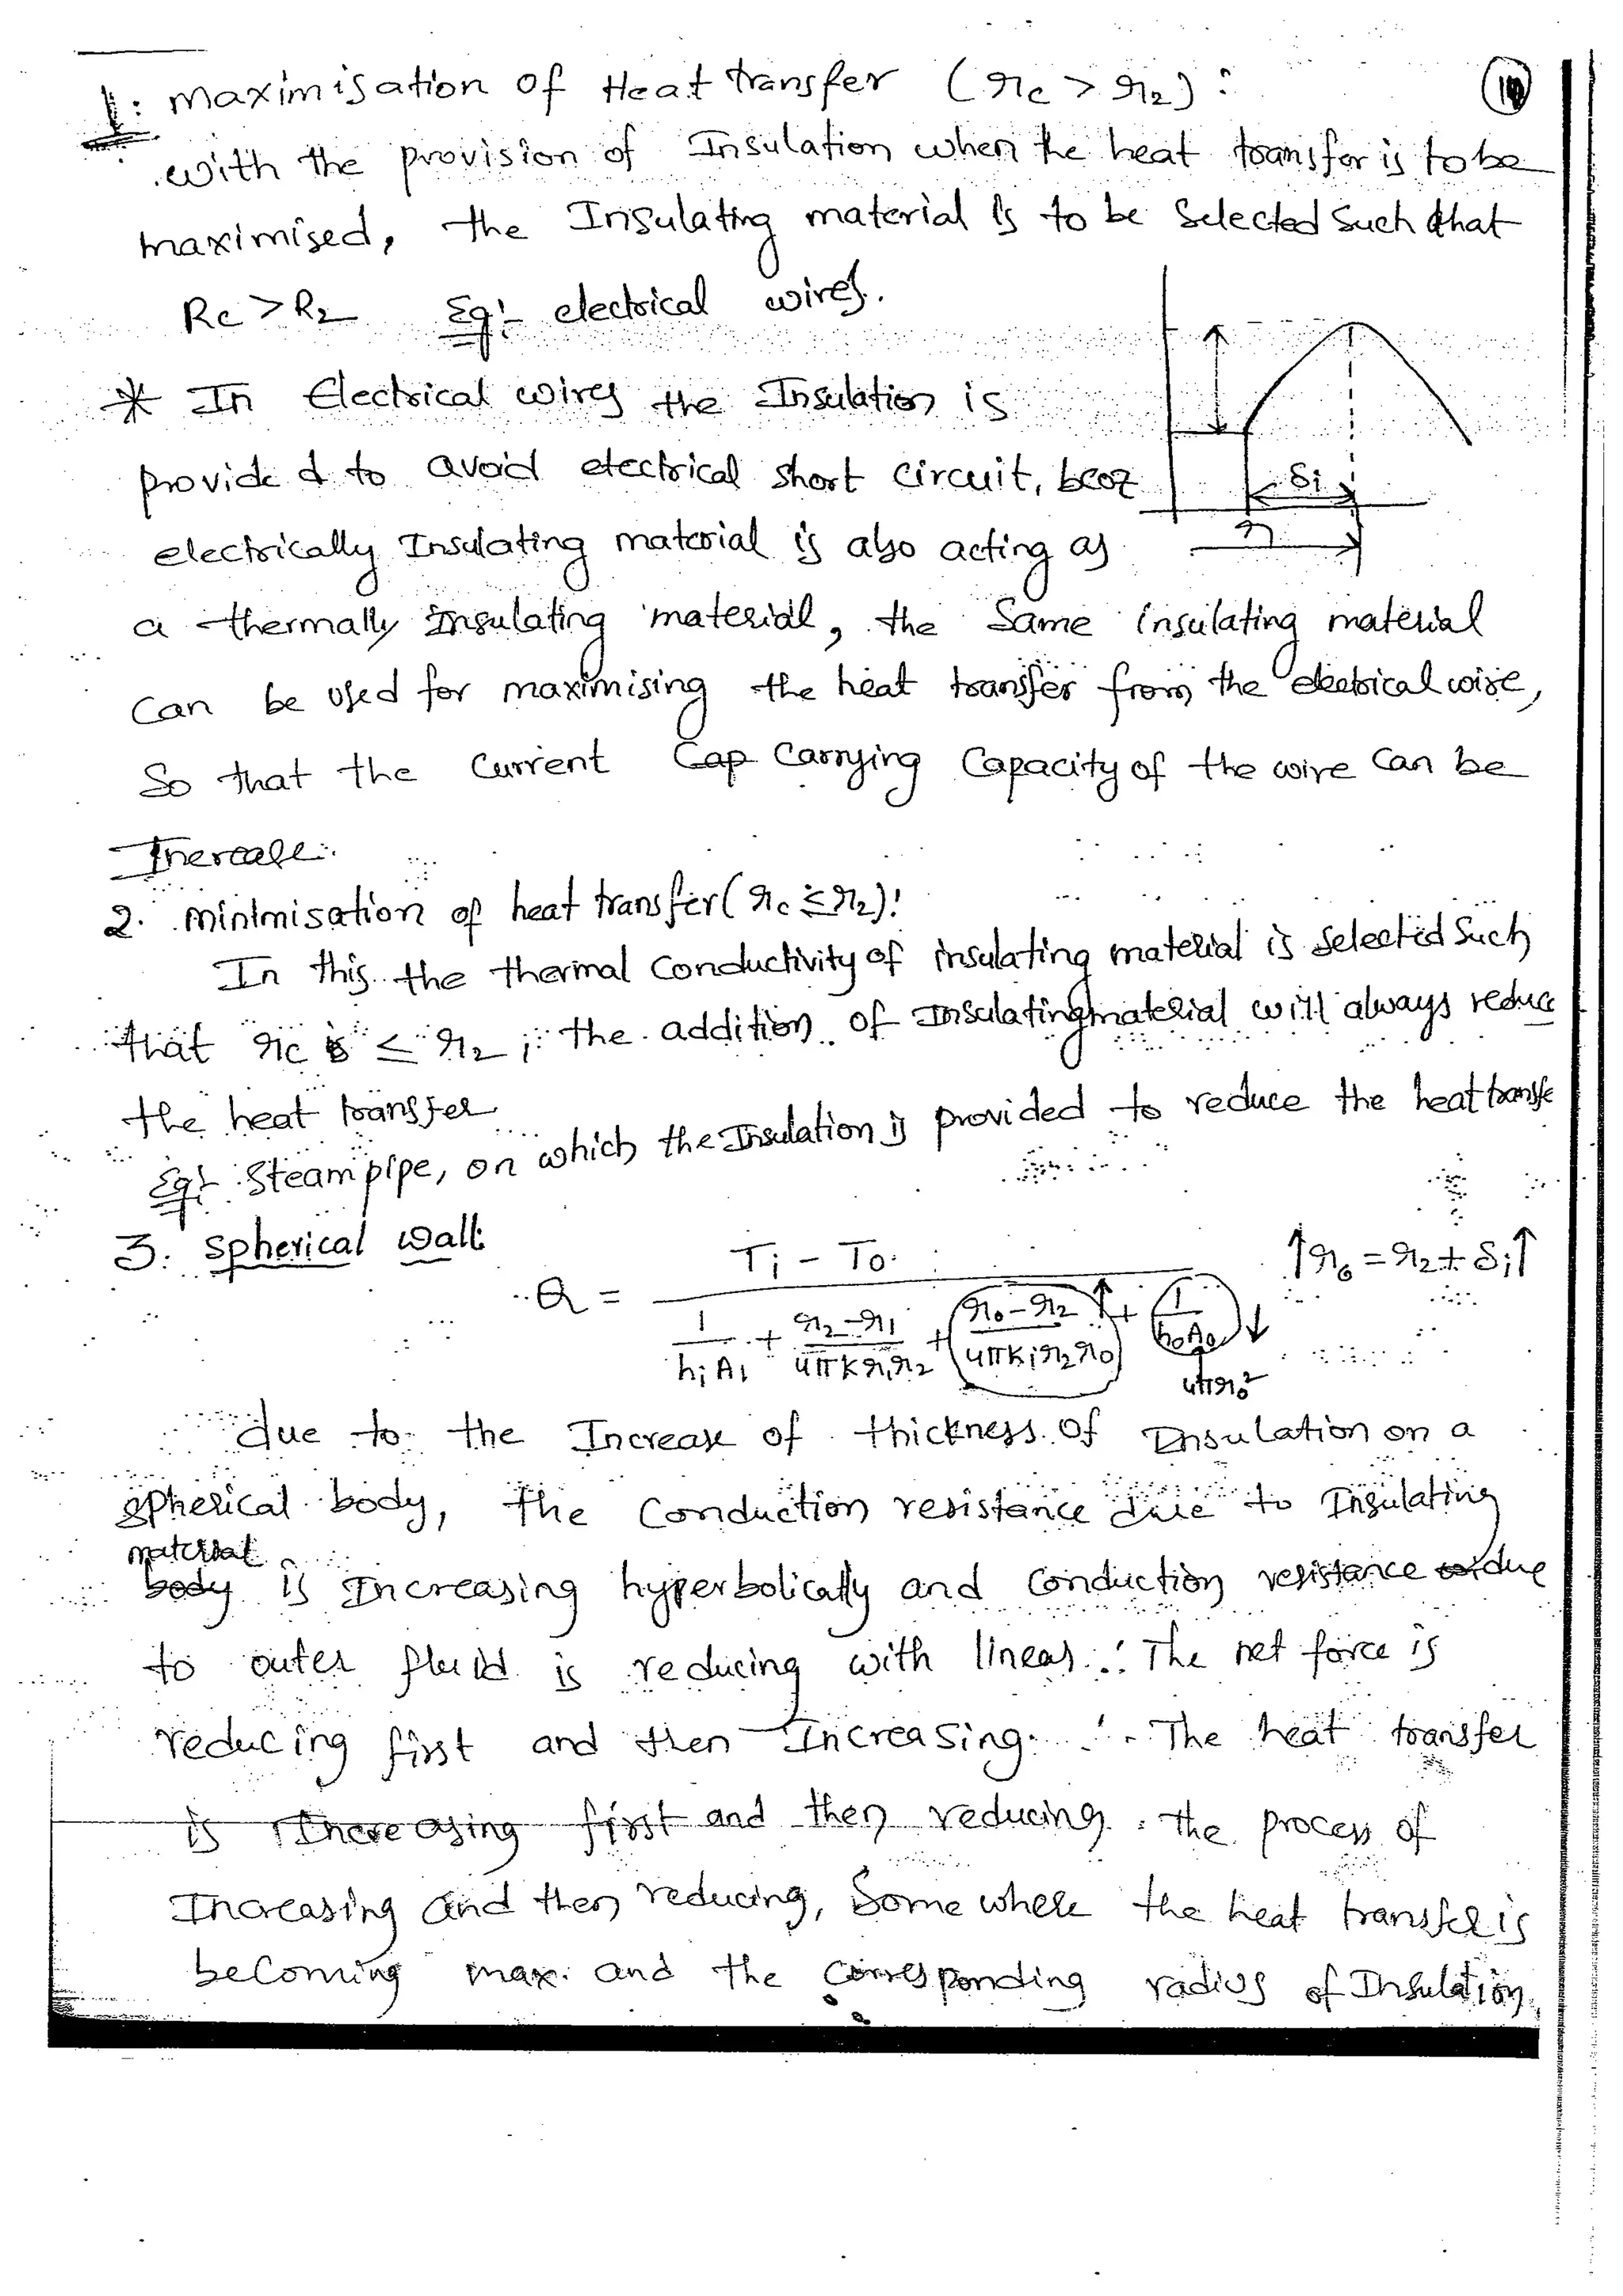 1: Maximisation of Heat transfer (rc > r2) :
10
with the provision of Insulation when the heat transfer is to be
maximised, the Insulating material is to be Selected Such that
Rc > R2 Eg:- electrical wires.
* In Electrical wires the Insulation is
provided to avoid electrical short circuit, bcoz
δi
electrically Insulating material is also acting as
r
a thermally Insulating material, the Same insulating material
Can be used for maximising the heat transfer from the electrical wire,
So that the Current Cap Carrying Capacity of the wire Can be
Increase.
2. minimisation of heat transfer (rc ≤ r2):
In this the thermal Conductivity of insulating material is Selected Such
that rc is ≤ r2, the addition of Insulating material will always reduce
the heat transfer
Eg:- Steam pipe, on which the Insulation is provided to reduce the heat transfe
3. Spherical wall:
Q = Ti - To / 1/hiA1 + r2-r1/4πkr1r2 + ro-r2/4πkir2ro ↑ + 1/hoAo ↓
↑ro = r2 + δi↑
4πro²
due to the Increase of thickness of Insulation on a
spherical body, the Conduction resistance due to Insulating
material
body is Increasing hyperbolically and Conduction resistance due
to outer fluid is reducing with linear. ∴ The net force is
reducing first and then Increasing. ∴ The heat transfer
is Increasing first and then reducing. The process of
Increasing and then reducing, Some where the heat transfer is
becoming max. and the Corresponding radius of Insulation